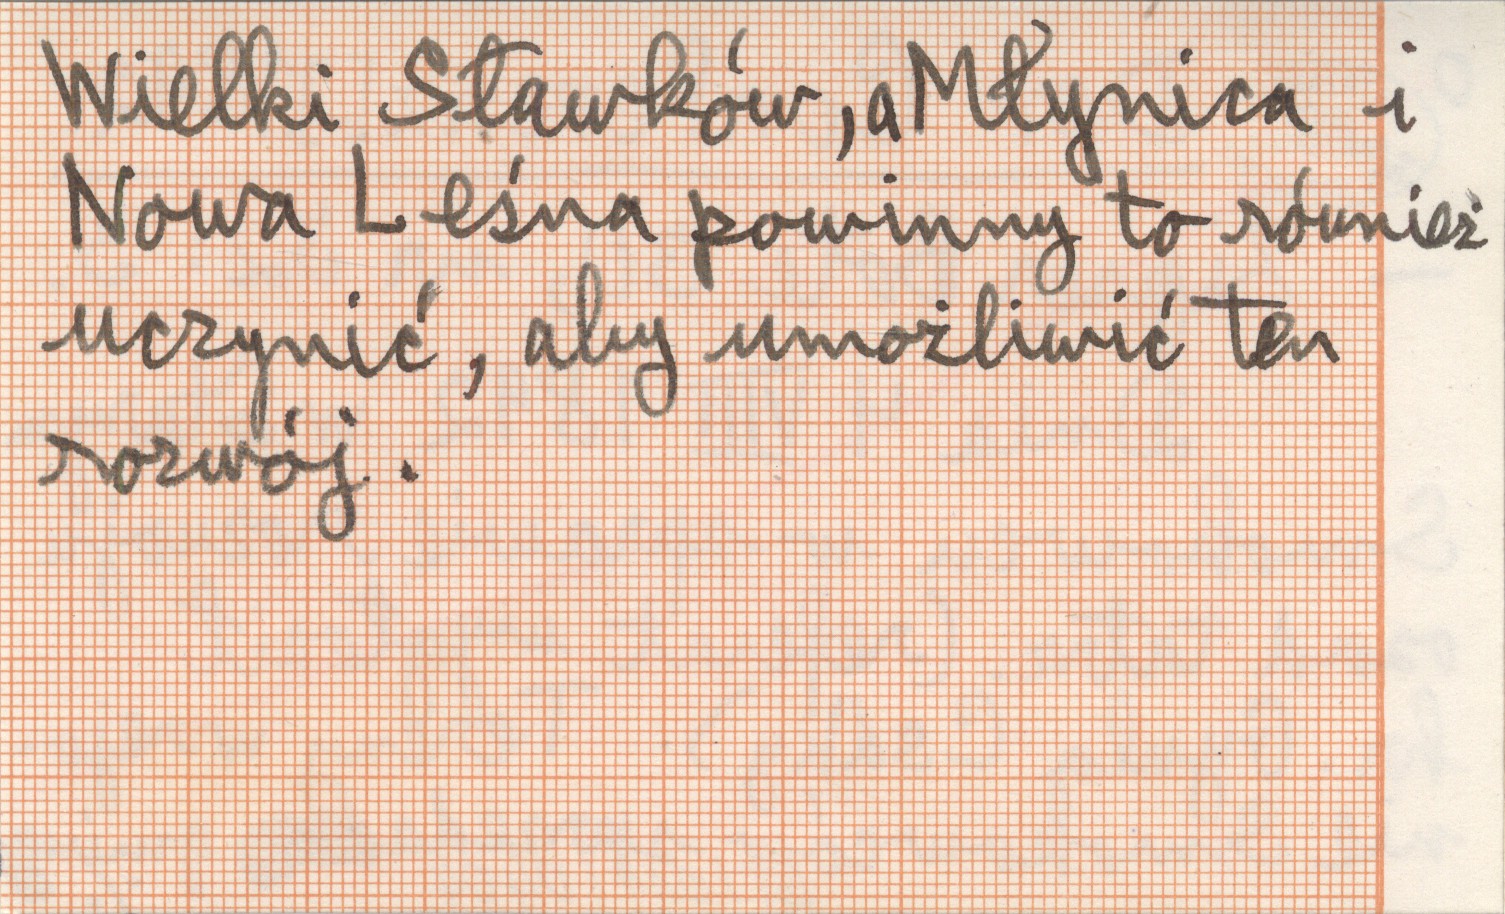 Wielki Stawków, a Młynica i
Nowa Leśna powinny to również
uczynić, aby umożliwić ten
rozwój.